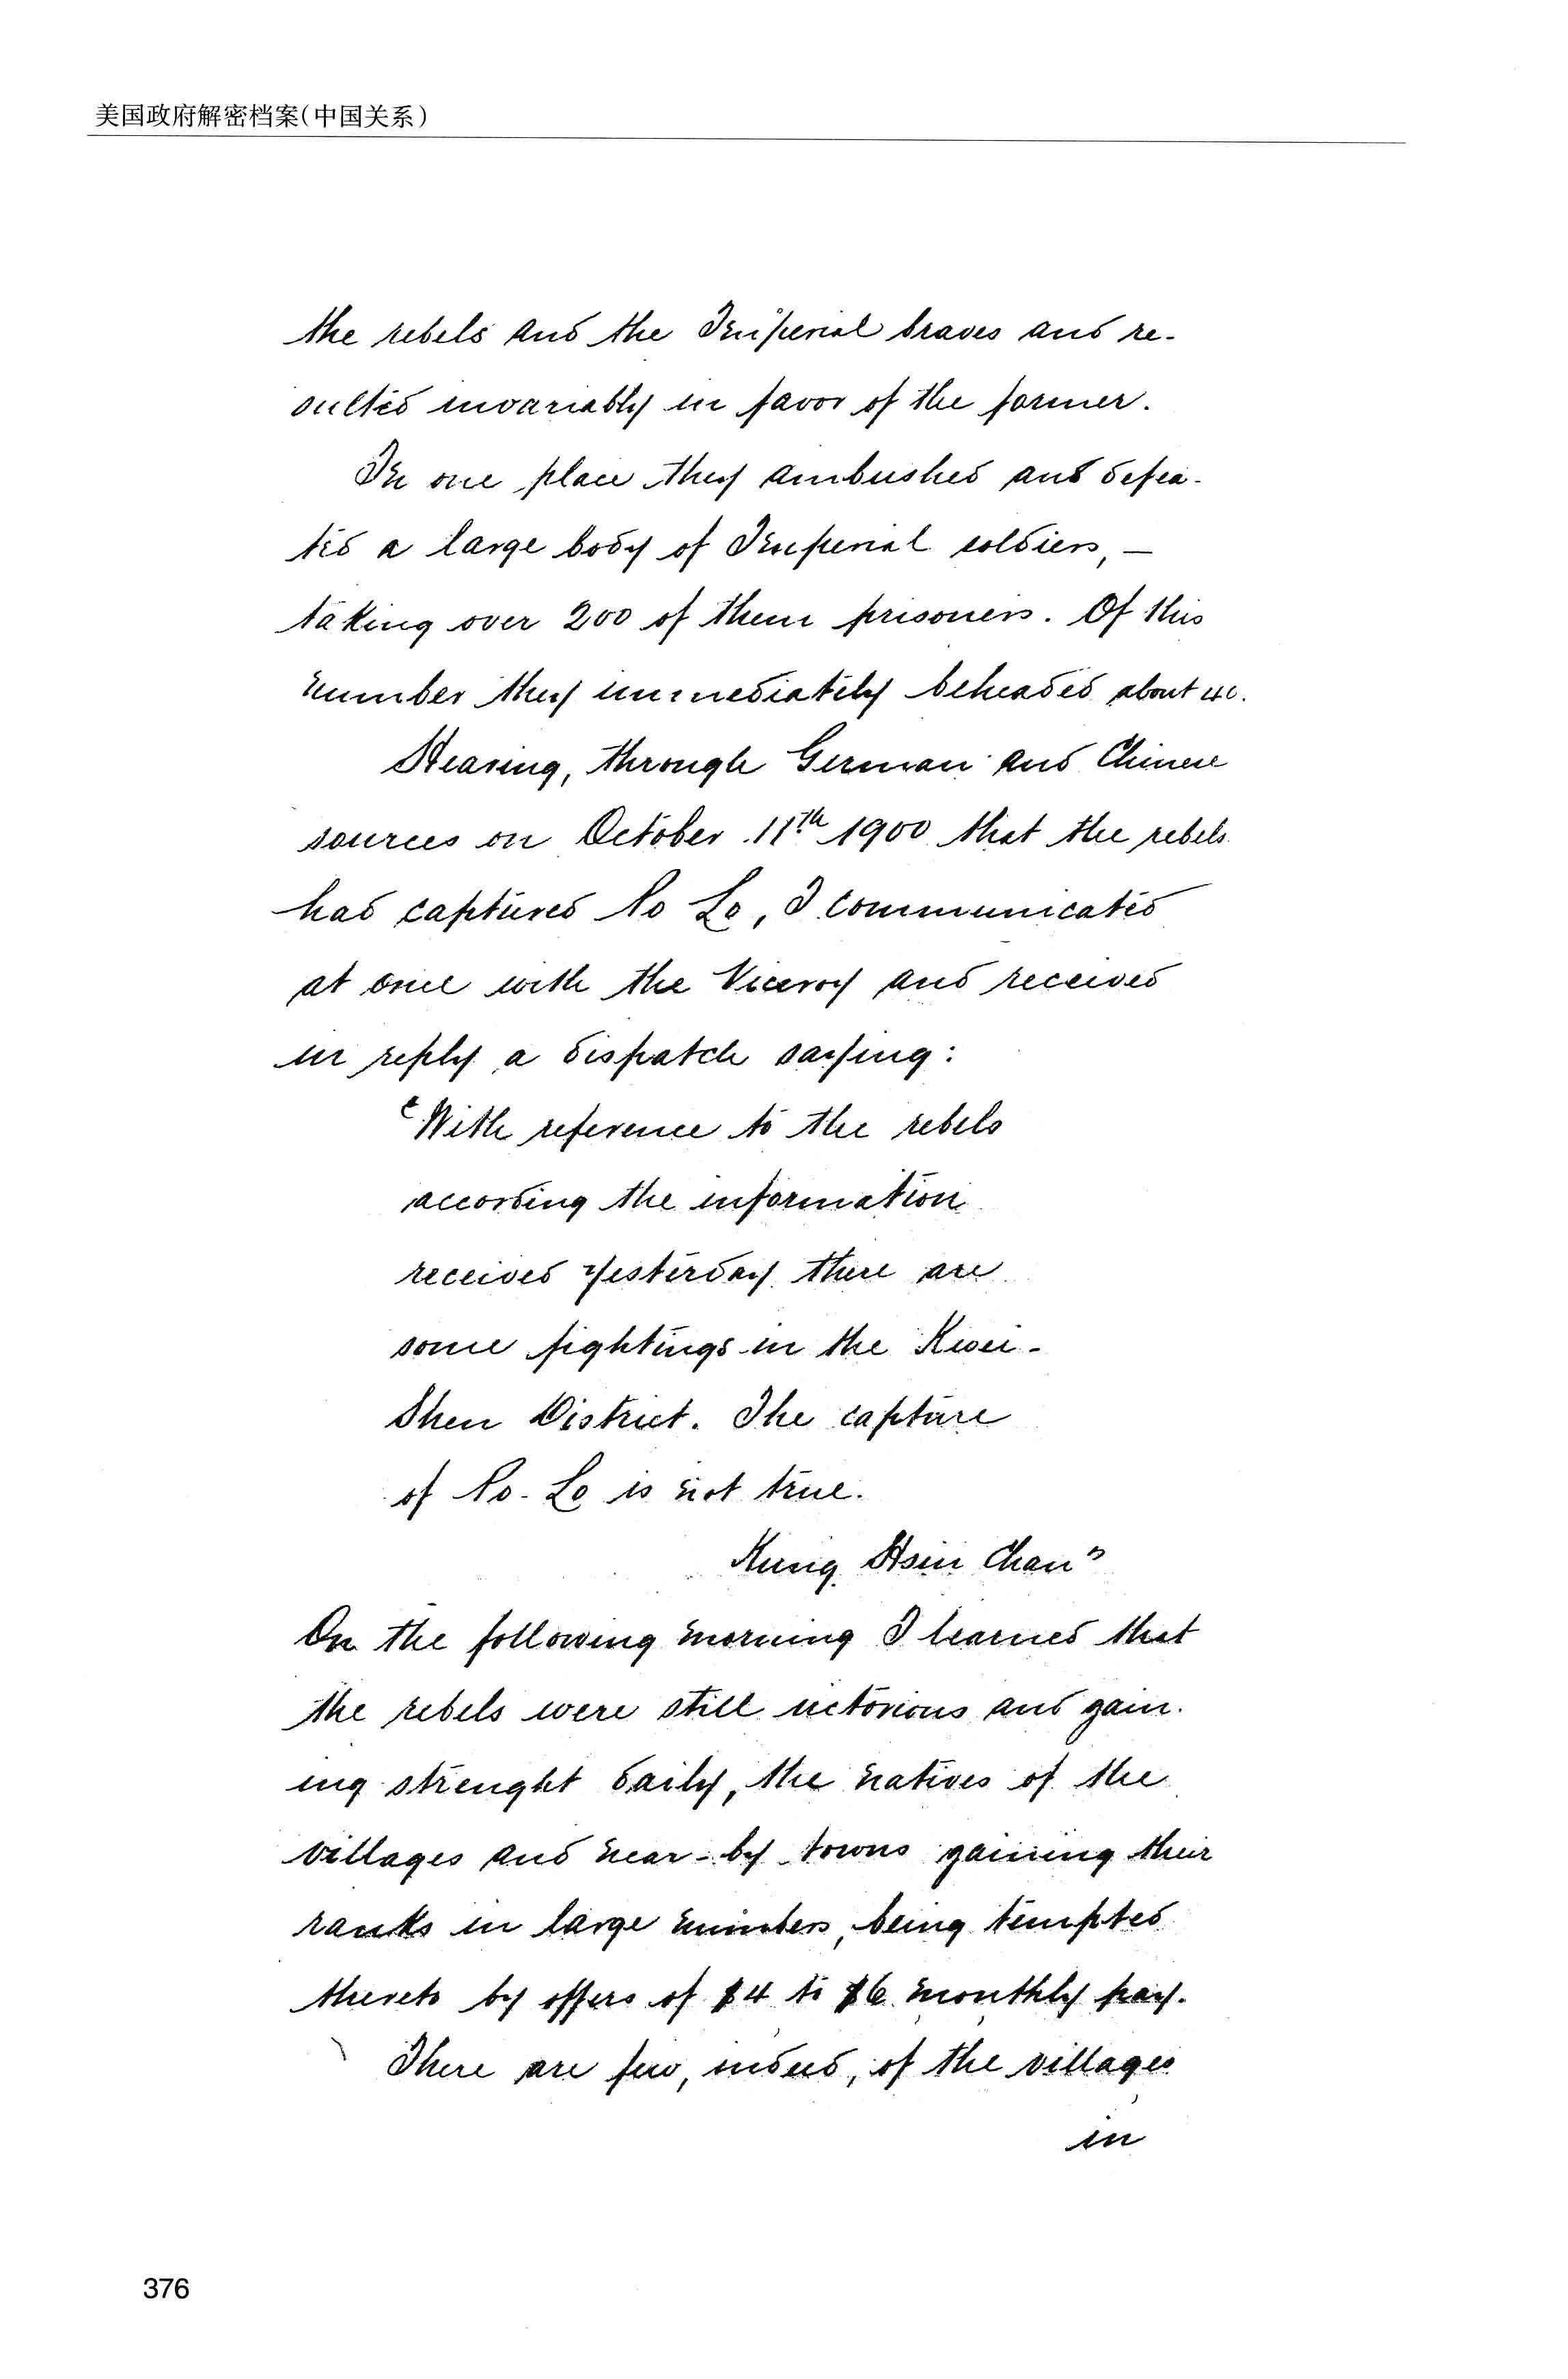 美国政府解密档案(中国关系)
the rebels and the Imperial braves and re-
sulted invariably in favor of the former.
In one place they ambushed and defea-
ted a large body of Imperial soldiers, —
taking over 200 of them prisoners. Of this
number they immediately beheaded about 40.
Hearing, through German and Chinese
sources on October 11th 1900 that the rebels
had captured Po Lo, I communicated
at once with the Viceroy and received
in reply a dispatch saying:
"With reference to the rebels
according the information
received yesterday there are
some fightings in the Kwei-
Shen District. The capture
of Po-Lo is not true.
Kung Hsin Chan"
On the following morning I learned that
the rebels were still victorious and gain-
ing strenght daily, the natives of the
villages and near-by towns gaining their
ranks in large numbers, being tempted
thereto by offers of $4 to $6 monthly pay.
There are few, indeed, of the villages
in
376